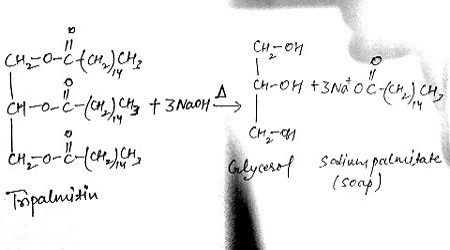 CH₂-O-C(=O)-(CH₂)₁₄CH₃
CH-O-C(=O)-(CH₂)₁₄CH₃ + 3NaOH —Δ→
CH₂-O-C(=O)-(CH₂)₁₄CH₃
Tripalmitin
CH₂-OH
CH-OH + 3Na⁺ O C(=O)-(CH₂)₁₄CH₃
CH₂-OH
Glycerol
Sodium palmitate
(soap)